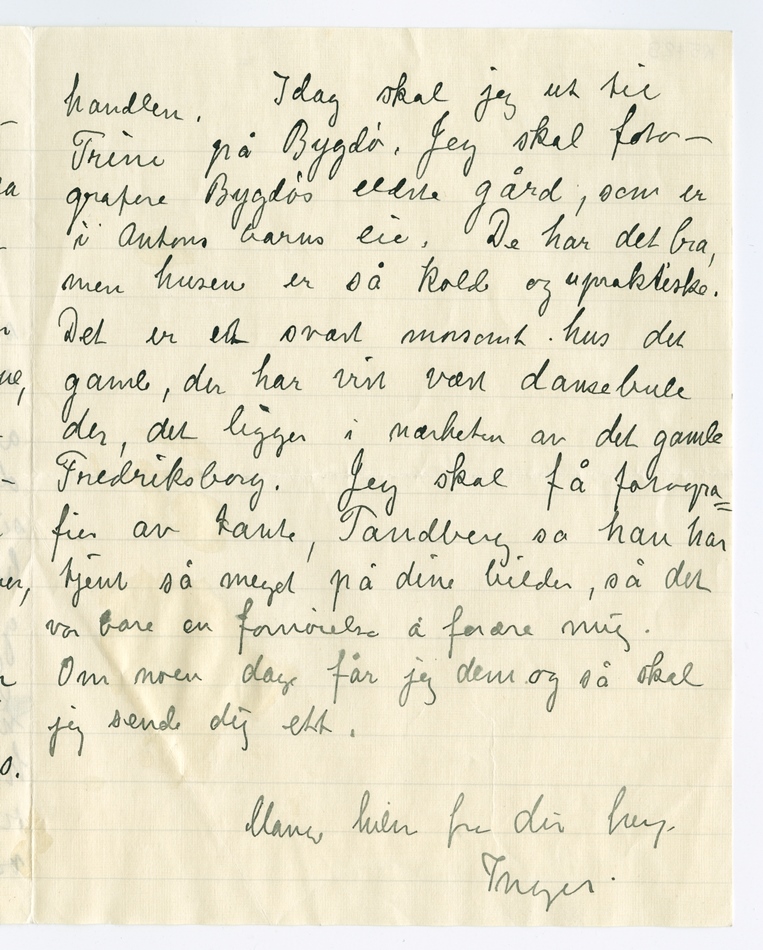 handlen. Idag skal jeg ut til
Trine på Bygdö. Jeg skal foto-
grafere Bygdös eldste gård, som er
i Antons barns eie. De har det bra,
men husene er så kolde og upraktiske.
Det er et svært morsomt hus det
gamle, der har vist vært dansebule
der, det ligger i nærheten av det gamle
Fredriksborg. Jeg skal få fotogra=
fier av tante, Tandberg sa han har
tjent så meget på dine bilder, så det
var bare en fornöielse å forære mig.
Om noen dage får jeg dem og så skal
jeg sende dig ett.
Mange hilsn fra din
Inger.